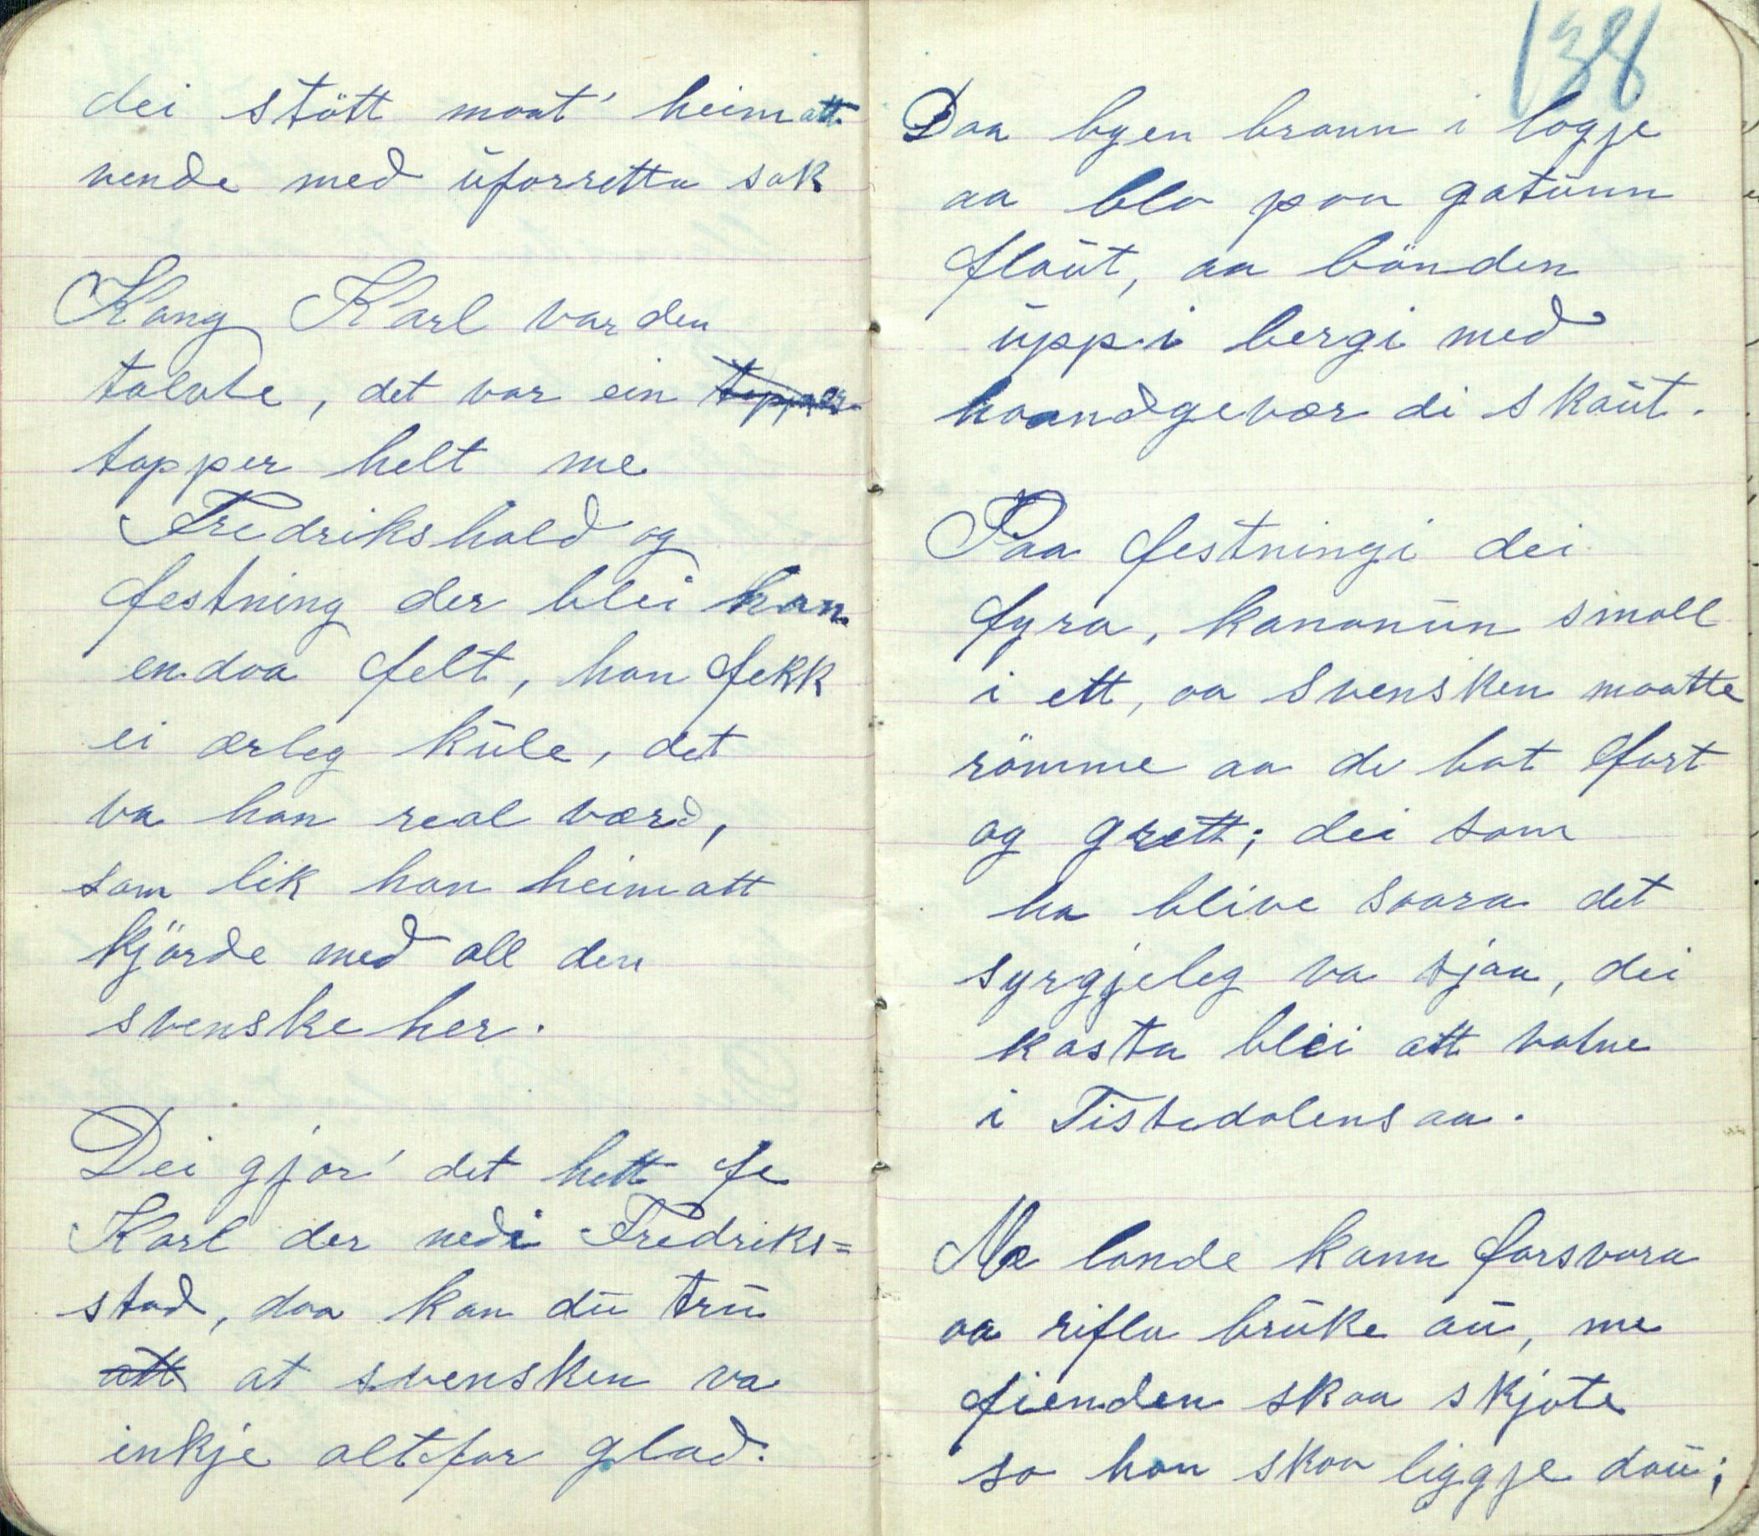 dei stött maat' heimatt
vende med uforretta sak
Kong Karl var den
tolvte, det var ein
tapper helt me
Fredrikshald og
festning der blei han
endaa felt, han fekk
ei ærleg kule, det
va han real værd,
som lik han heimatt
kjörde med all den
svenske her.
Dei gjor' det hett fe
Karl der nedi Fredriks=
stad, daa kan du tru
att at svensken va
inkje altfor glad.
138
Daa byen brann i logje
aa blo paa gatunn
flaut, aa bönden
uppi bergi med
haandgevær di skaut.
Paa festningi dei
fyra, kanonun small
i ett, aa svensken maatte
römme aa de bat fort
og grett; dei som
ha blive saara det
syrgjeleg va sjaa, dei
kasta blei att vatne
i Tistedalensaa.
Me lande kann forsvara
aa rifla bruke au, me
fienden skaa skjote
so han skaa liggje dau;